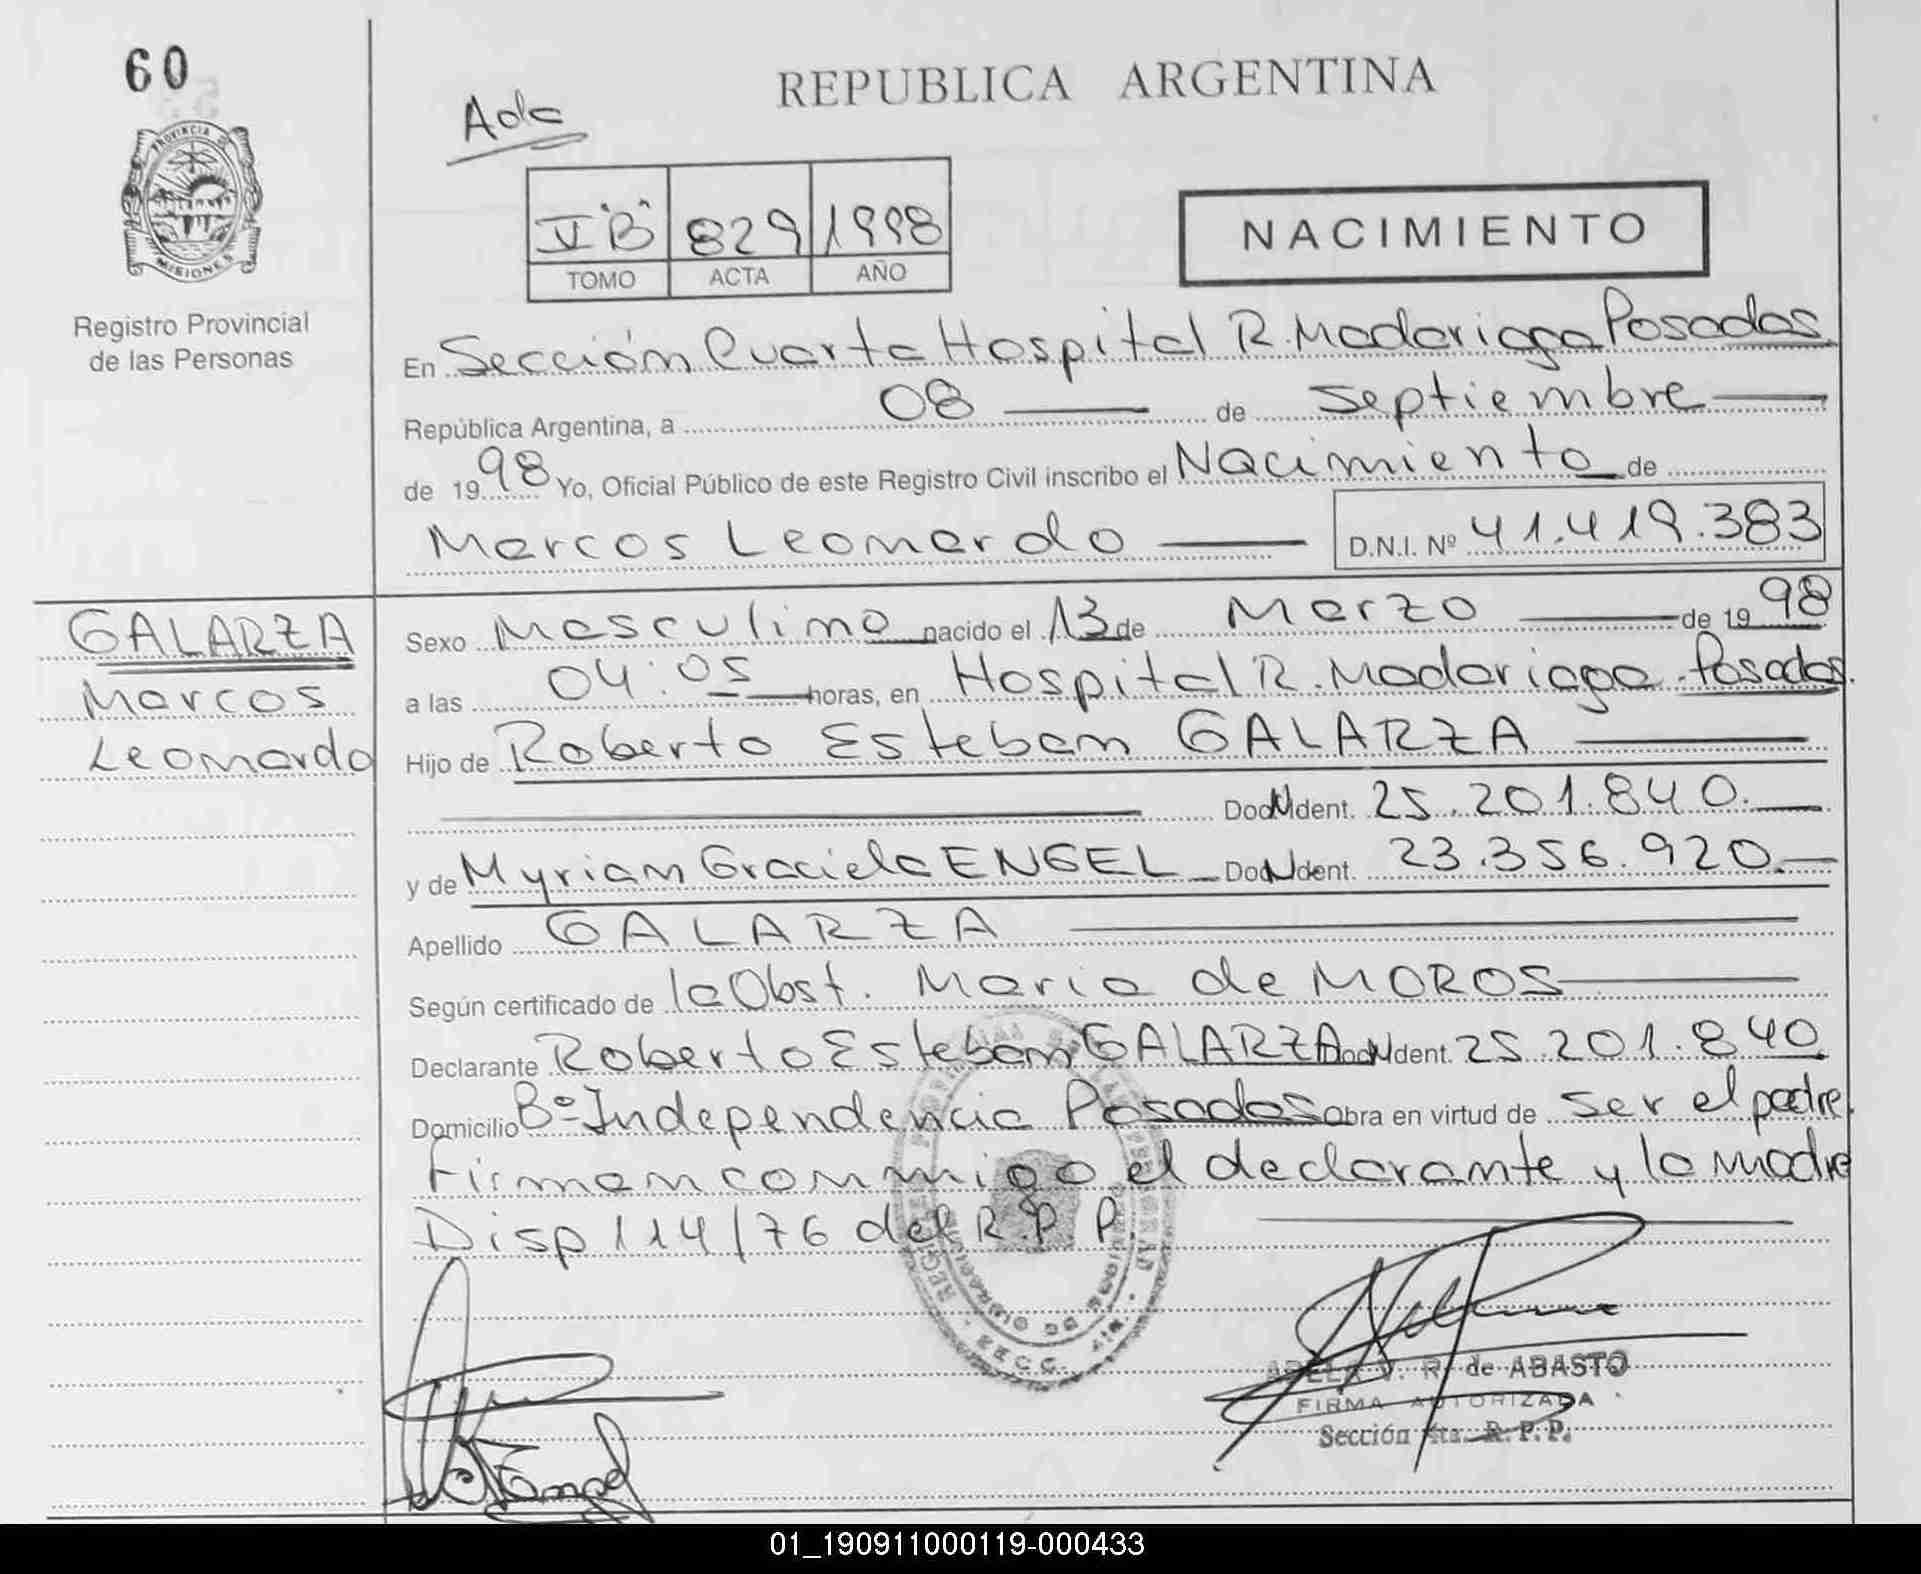 60
REPUBLICA ARGENTINA
Ada
PROVINCIA DE
MISIONES
V "B" 829 1998
TOMO ACTA AÑO
NACIMIENTO
Registro Provincial
de las Personas
En Sección Cuarta Hospital R. Madariaga Posadas
República Argentina, a 08 de septiembre
de 1998 Yo, Oficial Público de este Registro Civil inscribo el Nacimiento de
Marcos Leonardo D.N.I. Nº 41.419.383
GALARZA
Marcos
Leonardo
Sexo Masculino nacido el 13 de Marzo de 1998
a las 04:05 horas, en Hospital R. Madariaga Posadas.
Hijo de Roberto Esteban GALARZA
Doc. Ident. 25.201.840.
y de Myriam Graciela ENGEL Doc. Ident. 23.356.920.
Apellido GALARZA
Según certificado de la Obst. Maria de MOROS
Declarante Roberto Esteban GALARZA Doc. Ident. 25.201.840
Domicilio Bº Independencia Posadas Obra en virtud de ser el padre.
Firman conmigo el declarante y la madre
Disp 114/76 del R.P.P.
Engel
V. R. de ABASTO
FIRMA AUTORIZADA
Sección 4ta. R.P.P.
01_190911000119-000433